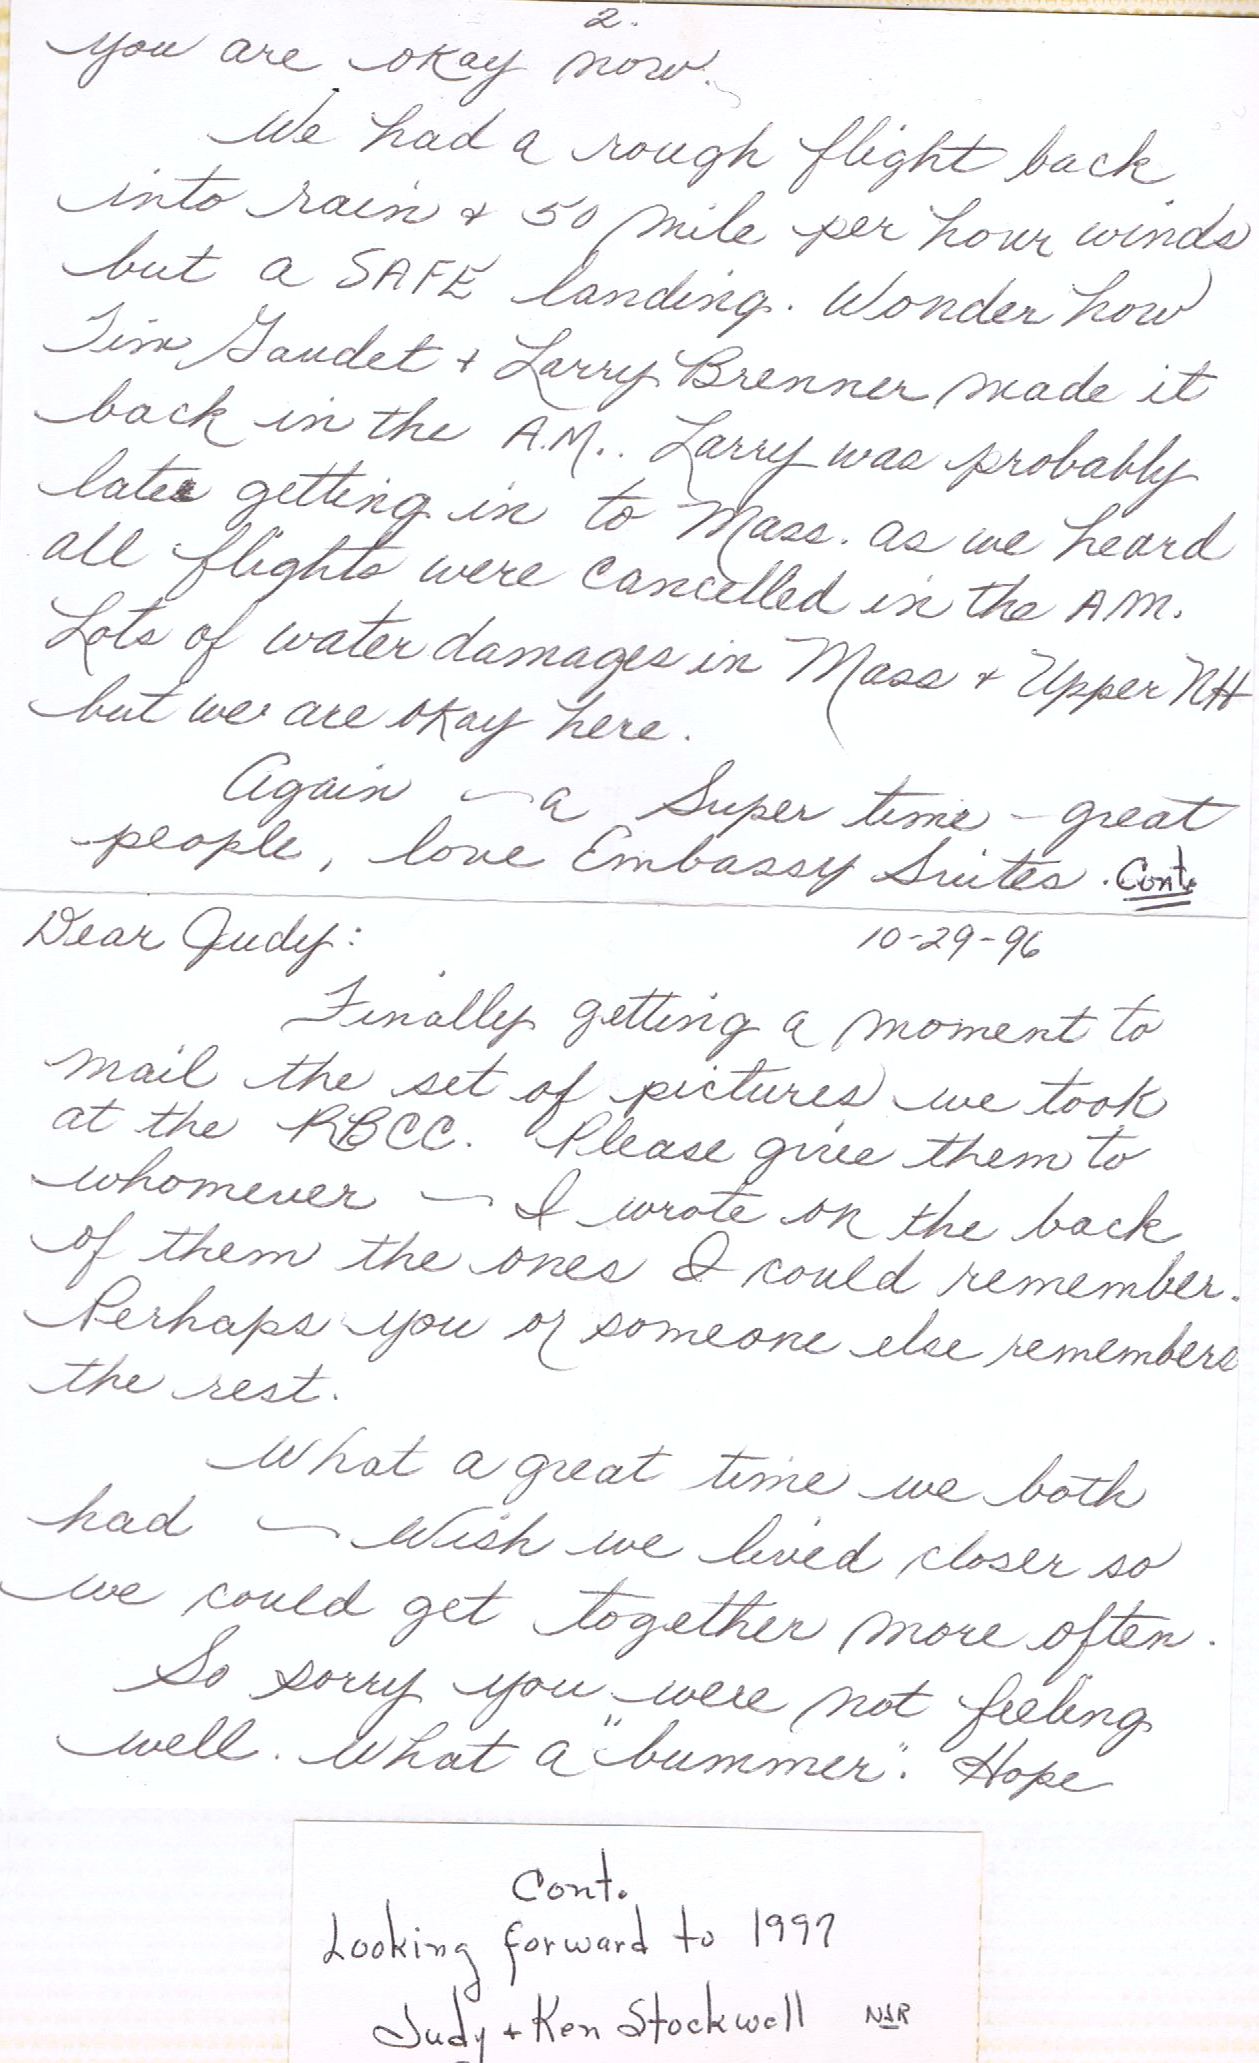 2.
you are okay now.
We had a rough flight back
into rain + 50 mile per hour winds
but a SAFE landing. Wonder how
Tim Gaudet + Larry Brenner made it
back in the A.M.. Larry was probably
late getting in to Mass. as we heard
all flights were cancelled in the AM.
Lots of water damages in Mass + Upper NH
but we are okay here.
Again — a Super time — great
people, love Embassy Suites. Cont.
Dear Judy: 10-29-96
Finally getting a moment to
mail the set of pictures we took
at the RBCC. Please give them to
whomever — I wrote on the back
of them the ones I could remember.
Perhaps you or someone else remembers
the rest.
What a great time we both
had — Wish we lived closer so
we could get together more often.
So sorry you were not feeling
well. What a "bummer". Hope
Cont.
Looking forward to 1997
Judy + Ken Stockwell